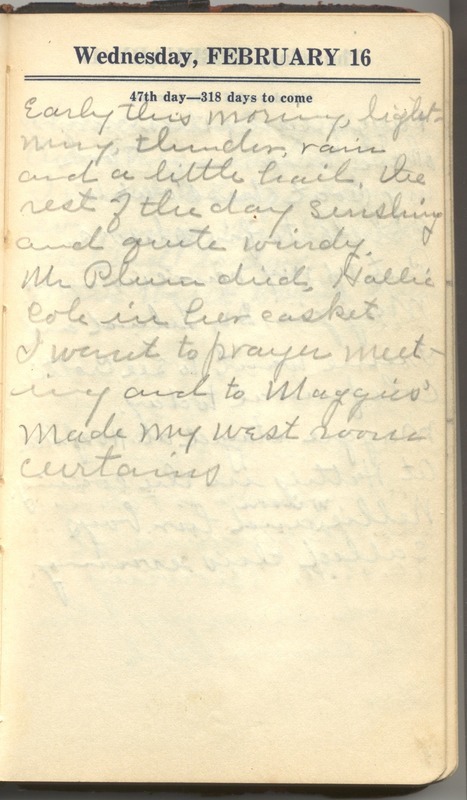 Wednesday, FEBRUARY 16
47th day—318 days to come
Early this morning, light-
ning, thunder, rain
and a little hail, the
rest of the day sunshiny
and quite windy.
Mr Plum died, Hallie
Cole in her casket
I went to prayer meet-
ing and to Maggies'
Made my west room
curtains